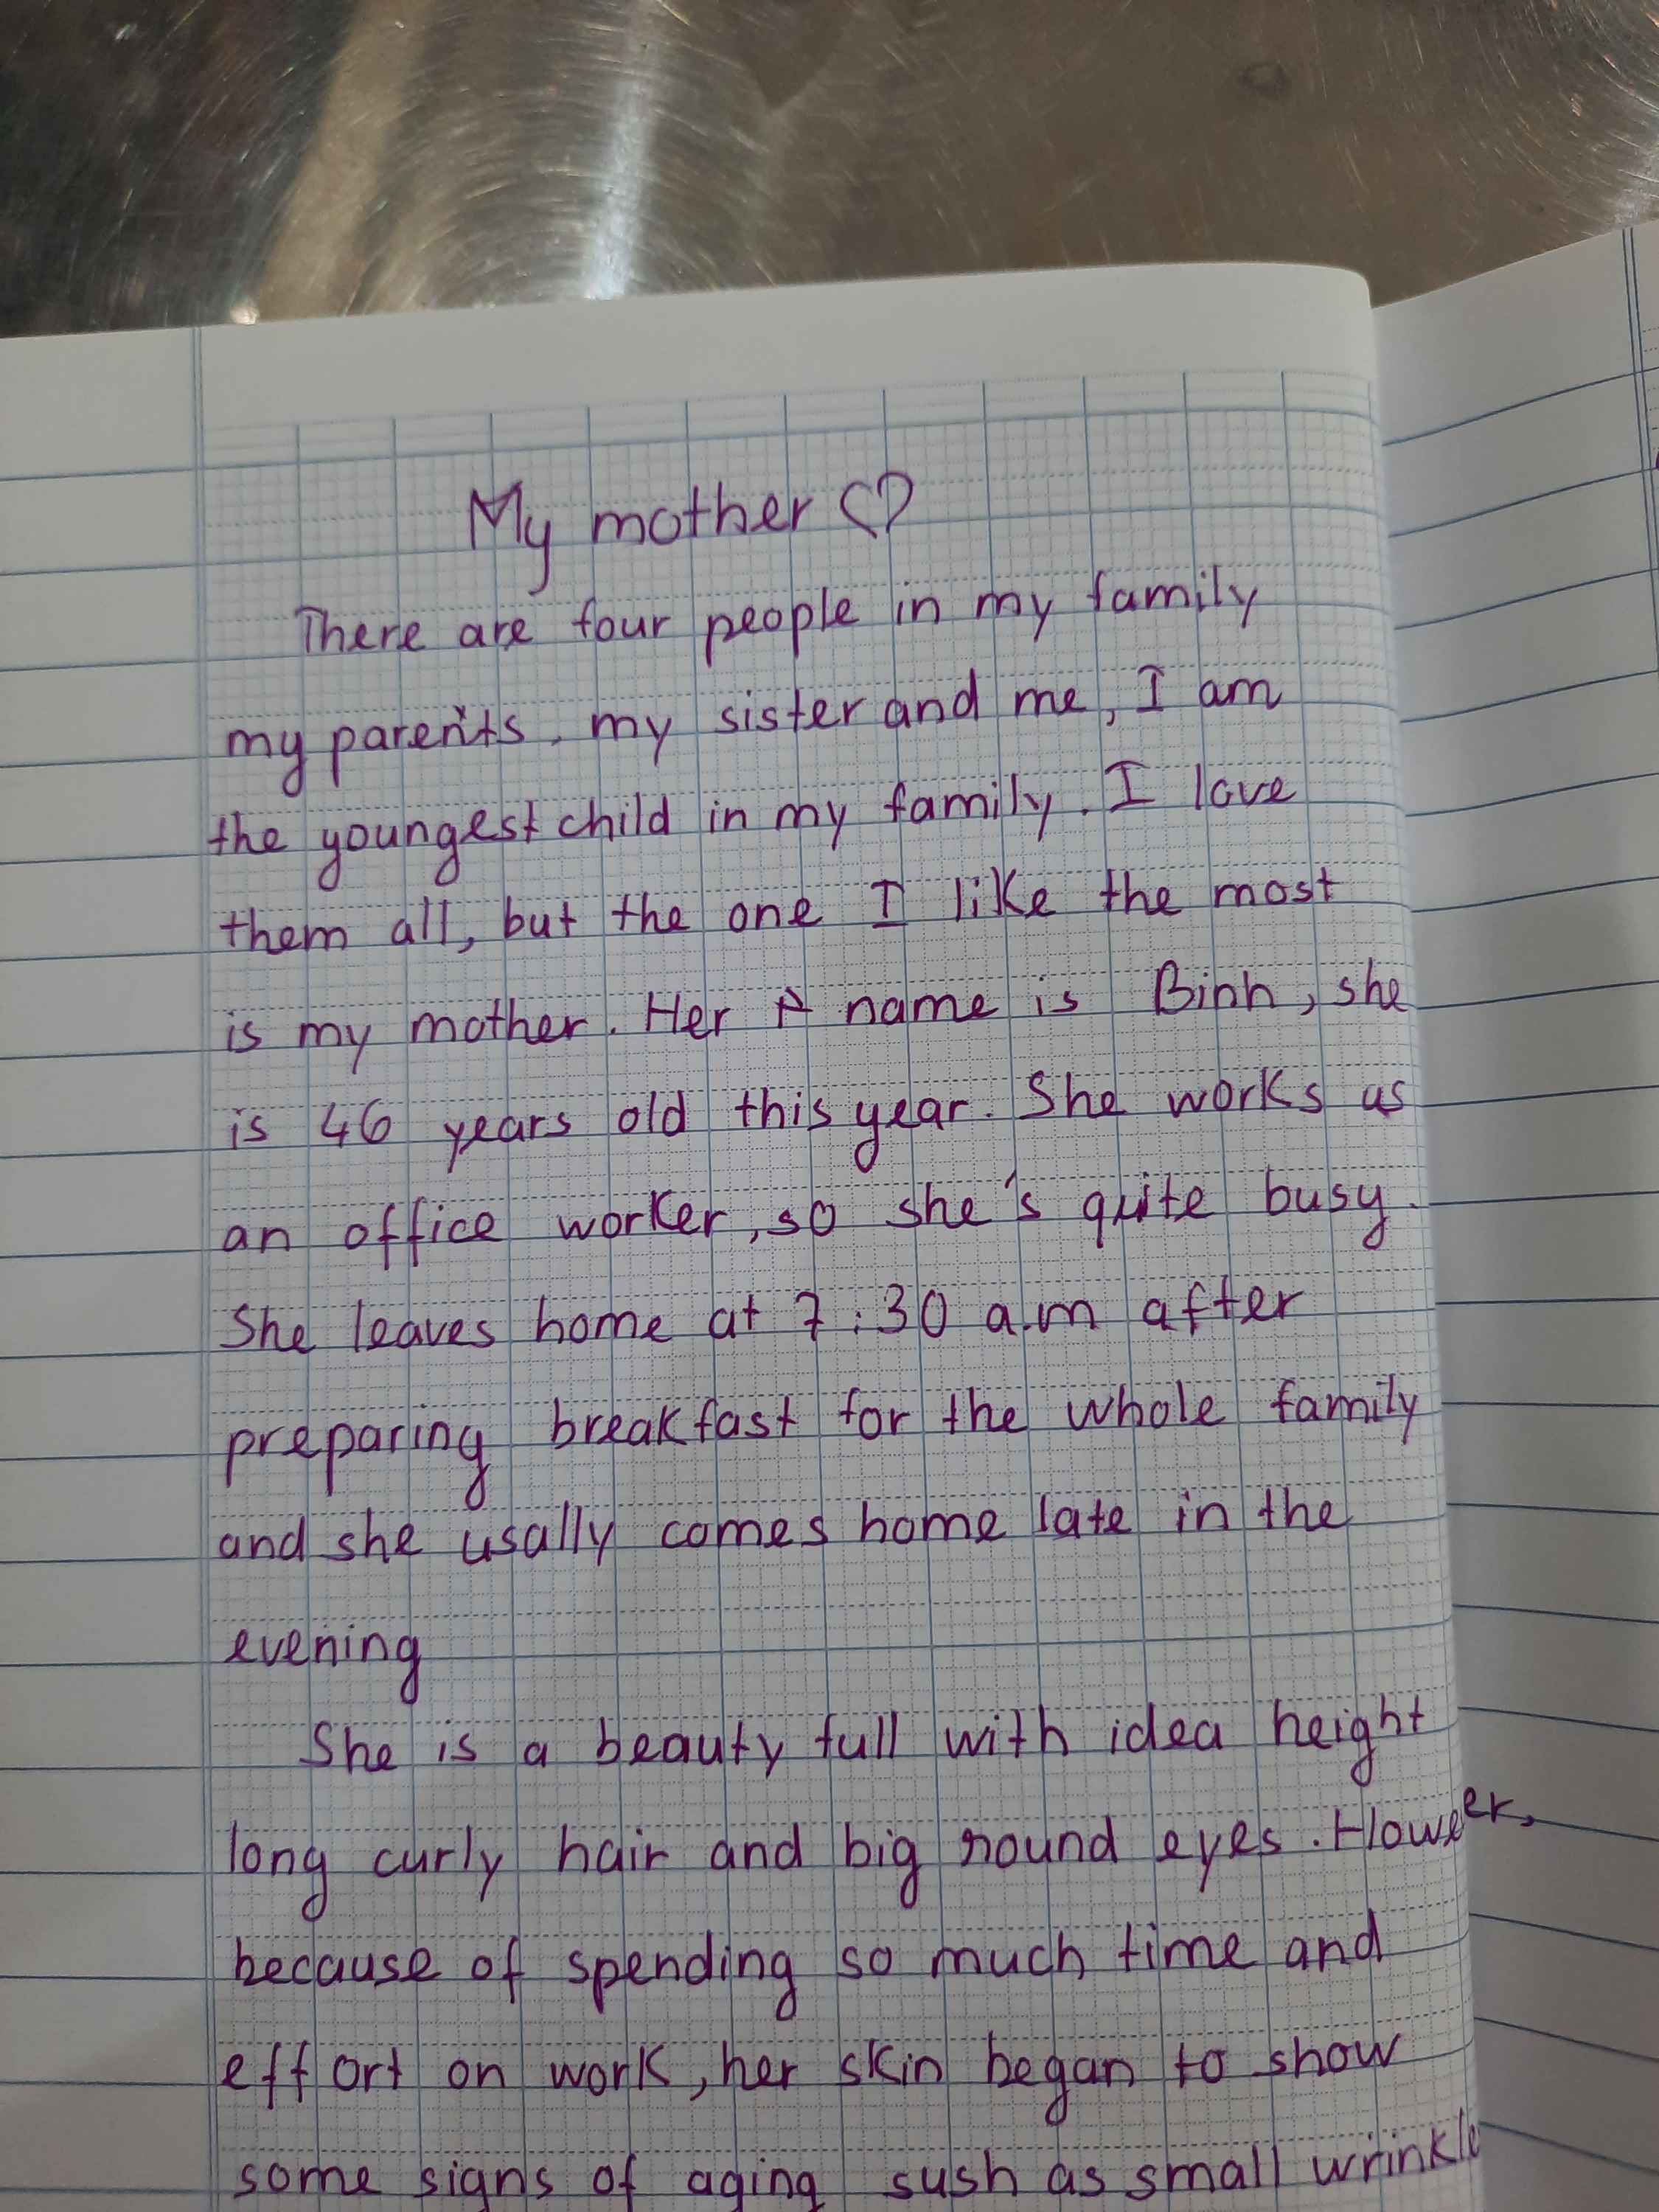 My mother ♡
There are four people in my family
my parents. my sister and me, I am
the youngest child in my family. I love
them all, but the one I like the most
is my mother. Her name is Binh, she
is 46 years old this year. She works as
an office worker, so she's quite busy.
She leaves home at 7:30 a.m after
preparing breakfast for the whole family
and she usally comes home late in the
evening
She is a beauty full with idea height
long curly hair and big round eyes. Howeer,
because of spending so much time and
effort on work, her skin began to show
some signs of aging sush as small wrinkle